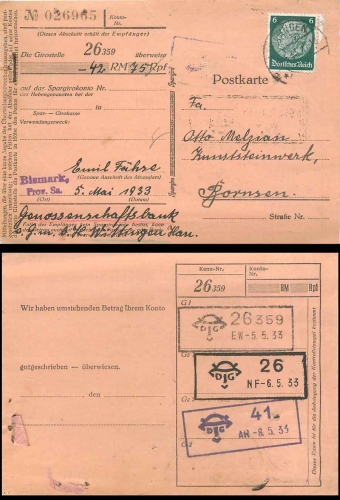 № 026965
Konto-Nr.
(Diesen Abschnitt erhält der Empfänger)
Die Girostelle 26359 überweise
-42 RM 75 Rpf
auf das Spargirokonto Nr.
bei Nebengenannten bei der
Spar- Girokasse
Verwendungszweck:
Emil Fähse
(Genaue Anschrift des Absenders)
Bismark,
Prov. Sa.
5. Mai 1933
(Ort) (Datum)
Genossenschaftsbank
e.G.m.b.H. Wittingen Han.
Spargiro
Spargiro
6 6
Deutsches Reich
Postkarte
Fa.
Otto Melzian
Kunststeinwerk,
Bornsen.
Straße Nr.
Konto-Nr. Konto-Nr.
26359 RM Rpf
Wir haben umstehenden Betrag Ihrem Konto
gutgeschrieben — überwiesen.
den
G1
DJG 26359
EW-5.5.33
DJG 26
NF-6.5.33
DJG 41.
AH-8.5.33
Dieses Feld ist für die Anbringung der Kontrollstempel bestimmt